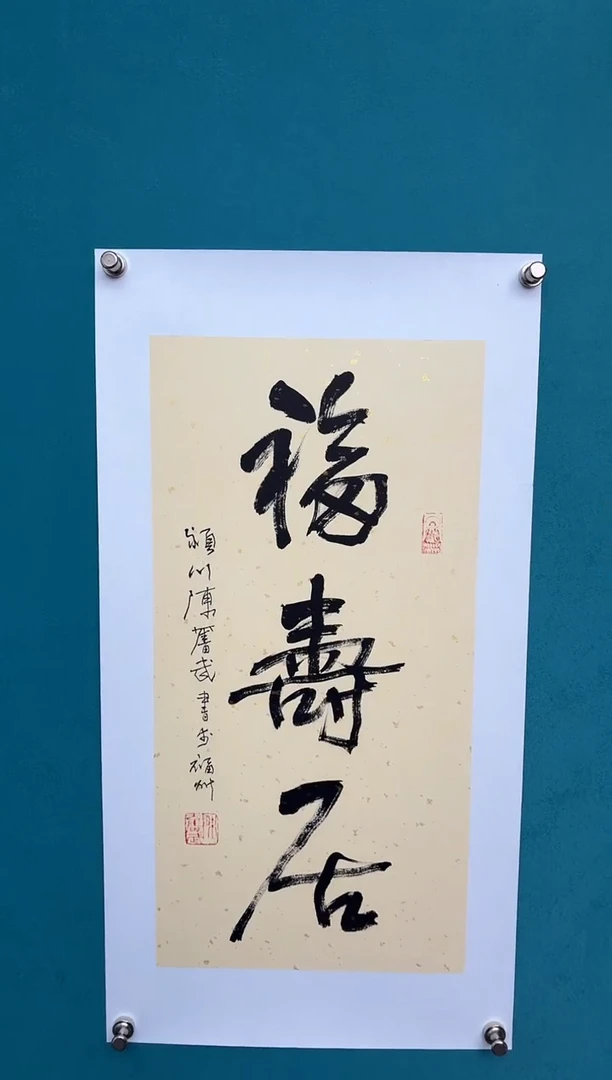 福壽居
潁川陳奮武書於福州